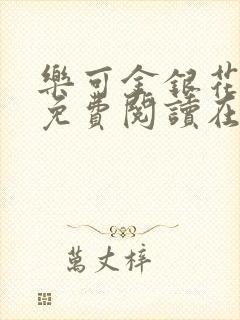 樂可金銀花
免費閱讀在
萬丈梓